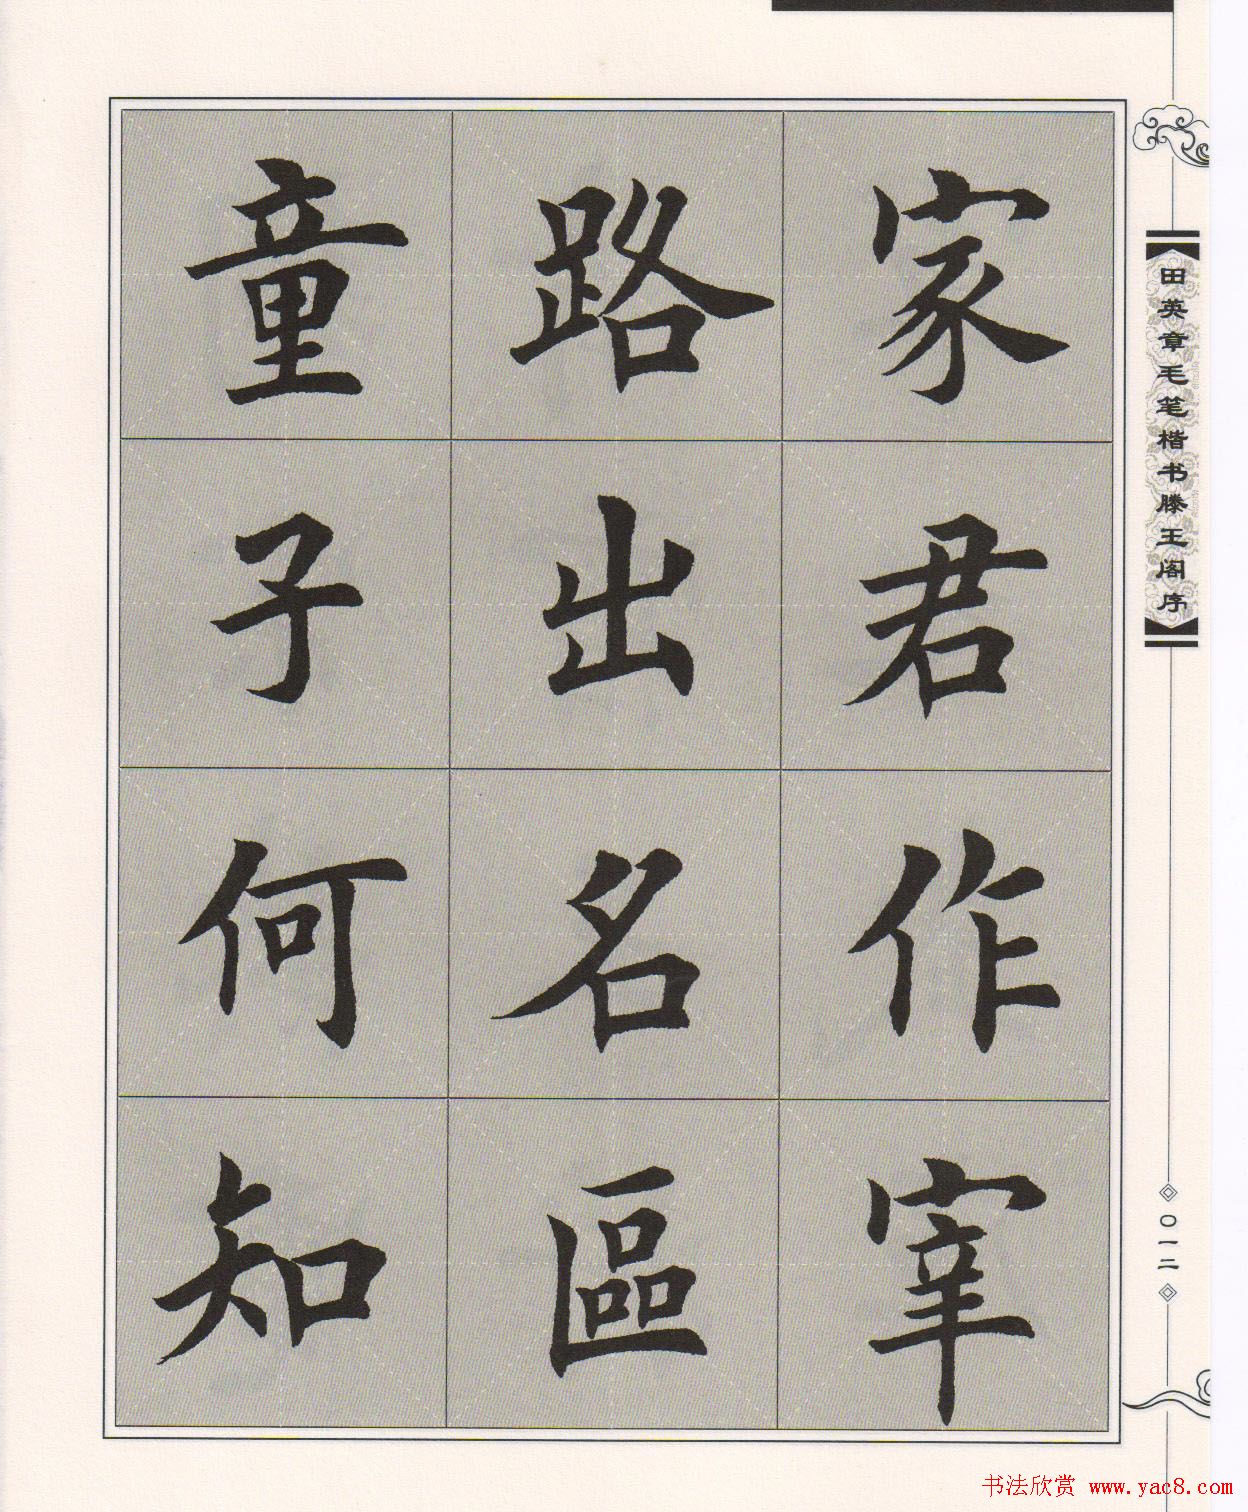 家君作宰
路出名區
童子何知
田英章毛笔楷书滕王阁序
〇一二
书法欣赏 www.yac8.com